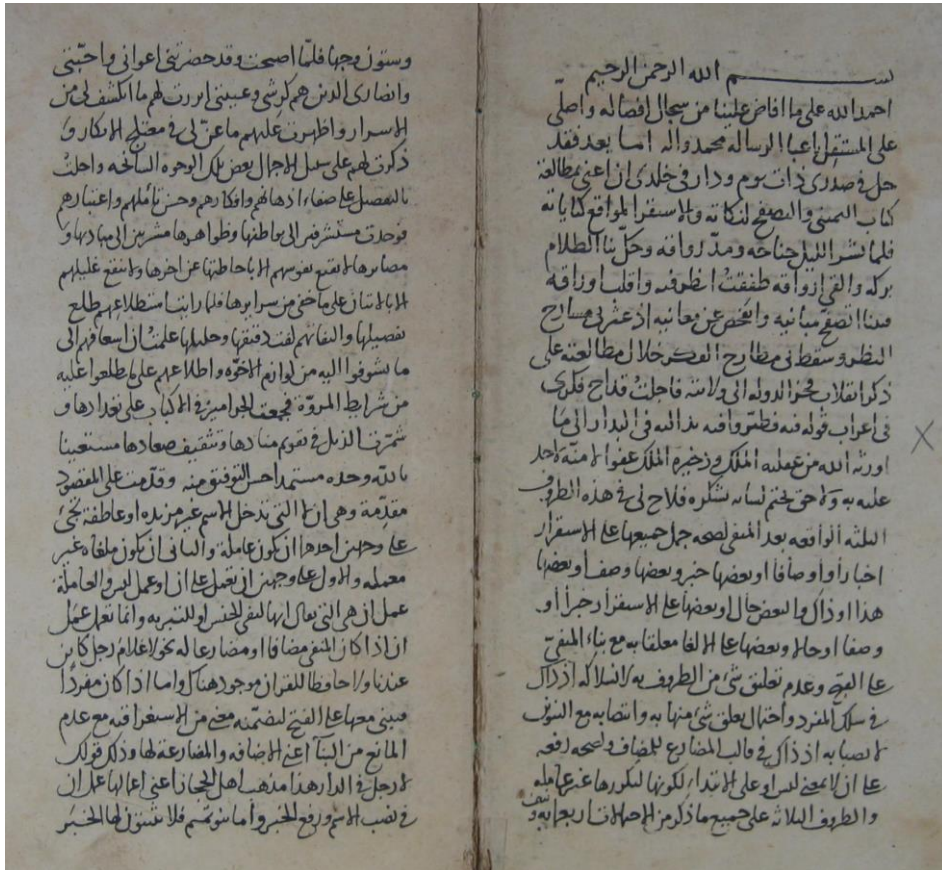 بسم الله الرحمن الرحيم
احمد الله على ما افاض علينا من سجال افضاله واصلى
على المستقل باعبا الرساله محمد واله اما بعد فقد
حل في صدرى ذات يوم ودار في خلدى ان اعنى بمطالعة
كتاب اليمينى والتصفح لنكاته والاستقرا لمواقع كناياته
فلما نشر الليل جناحه ومد رواقه وحل بنا الظلام
بركه والقى ارواقه طفقت انظر فيه واقلب اوراقه
فبينا اتصفح مبانيه واتفحص عن معانيه اذ عثر بى مسارح
النظر وسقط بى مطارح الفكر خلال مطالعته على
ذكر انقلاب فخر الدوله الى ولايته فاجلت قداح فكرى
في اعراب قوله فيه فطيروا فيه بدا اليه في البدار الى ما
اورثه الله من عمليه الملك وذخيره الملك عفوا لا منة لاحد
عليه به ولا حق يختم لسانه بشكره فلاح لى في هذه الظروف
الثلثه الواقعه بعد المنفى لصحه حمل جميعها على الاستقرار
اخبارا او اوصافا او بعضها خبر وبعضها وصف او بعضها
هذا او ذاك والبعض حال او بعضها على الاستقرار خبرا او
وصفا او حالا وبعضها على الالغا معلقا به مع بناء المنفى
على الفتح وعدم تعليق شئ من الظروف به لانسلاكه اذ ذاك
في سلك المفرد واحتمال تعلق شئ منها به وانتصابه مع التنوين
لانصبابه اذ ذاك في قالب المضارع للمضاف ولصحه رفعه
على ان لا بمعنى ليس او على الابتداء لكونها لتكررها غير عامله
والظروف الثلاثه على جميع ما ذكر من الاحتمالات اربعمايه و
وستون وجها فلما اصبحت وقد حضرتنى اعوانى واحبتى
وانصارى الذين هم كرشى وعيبتى ابرزت لهم ما انكشف لى من
الاسرار واظهرت عليهم ما عن لى في معتلج الافكار و
ذكرت لهم على سبيل الاجمال بعض تلك الوجوه السانحه واحلت
بالتفصيل على صفاء اذهانهم وافكارهم وحسن تأملهم واعتبارهم
فوجدت مستشرفين الى بواطنها وظواهرها مشربين الى مباديها و
مصايرها لا تقنع نفوسهم الا باحاطتها عن اخرها ولا تنقع غليلهم
الا بالاتيان على ما خفى من سرايرها فلما رايت استطلاعهم طلع
تفصيلها والتفاتهم لفت دقيقها وجليلها علمت ان اسعافهم الى
ما تشوفوا اليه من لوازم الاخوة واطلاعهم على ما يطلعوا عليه
من شرايط المروة فجمعت الجراميز في الاكباب على تعدادها و
شمرت الذيل في تقويم منادها وتثقيف صعادها مستعينا
بالله وحده مستمدا حسن التوفيق منه وقدمت على المقصود
مقدمة وهى ان لا التى تدخل الاسم غير مزيده او عاطفة تجئ
على وجهين احدهما ان تكون عاملة والثانى ان تكون ملغاه غير
معمله والاول على وجهين ان تعمل عمل ان او عمل ليس والعاملة
عمل ان هى التى يقال انها لنفى الجنس او للتبريه وانما تعمل عمل
ان اذا كان المنفى مضافا او مضارعا له نحو لا غلام رجل كاين
عندنا ولا حافظا للقران موجود هناك واما اذا كان مفردا
فيبنى معها على الفتح لتضمنه معنى من الاستغراقيه مع عدم
المانع من البناء اعنى الاضافه والمضارعة لها وذلك قولك
لا رجل في الدار هذا مذهب اهل الحجاز اعنى اعمالها عمل ان
في نصب الاسم ورفع الخبر واما بنو تميم فلا يثبتون لها الخبر